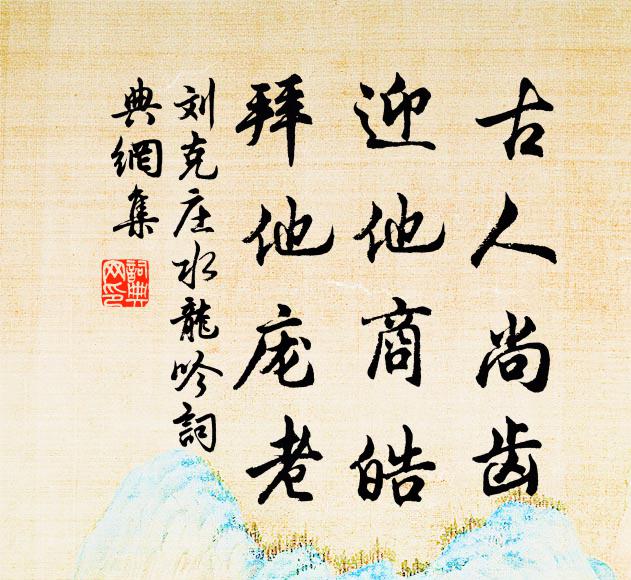 古人尚齿
迎他商皓
拜他庞老
刘克庄水龙吟词
典網集
詞典網印